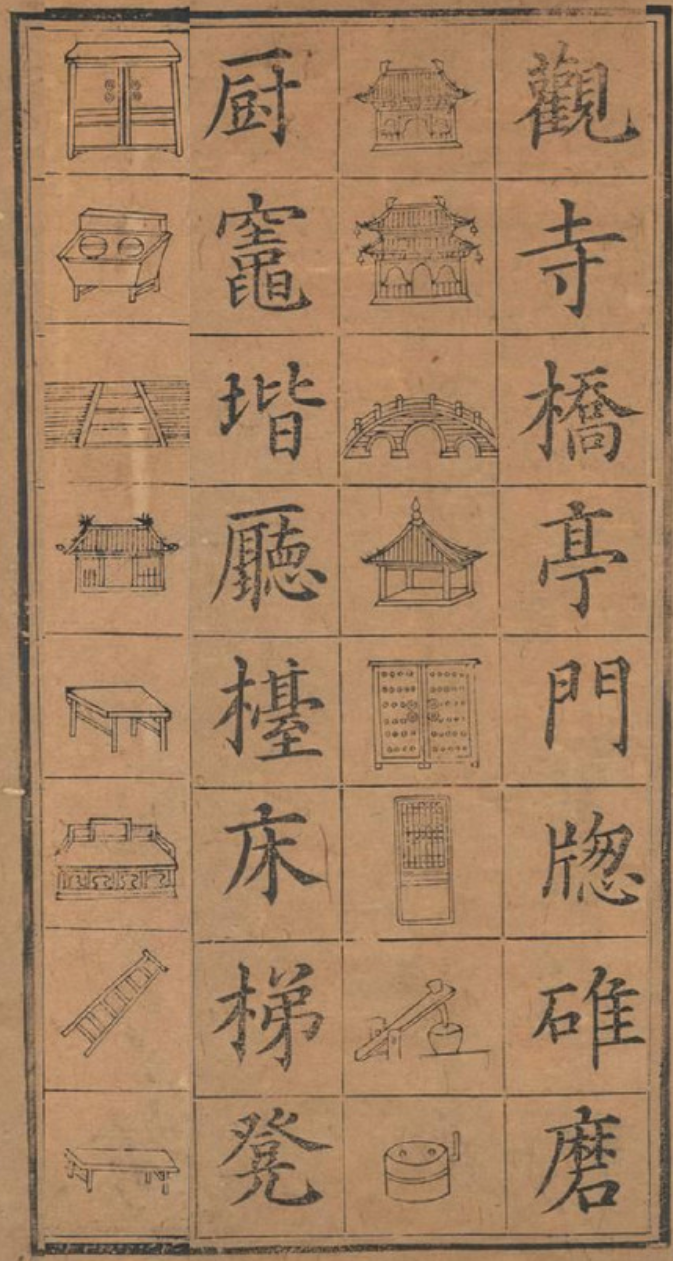 觀寺橋亭門牎碓磨
厨竈堦廳檯床梯凳